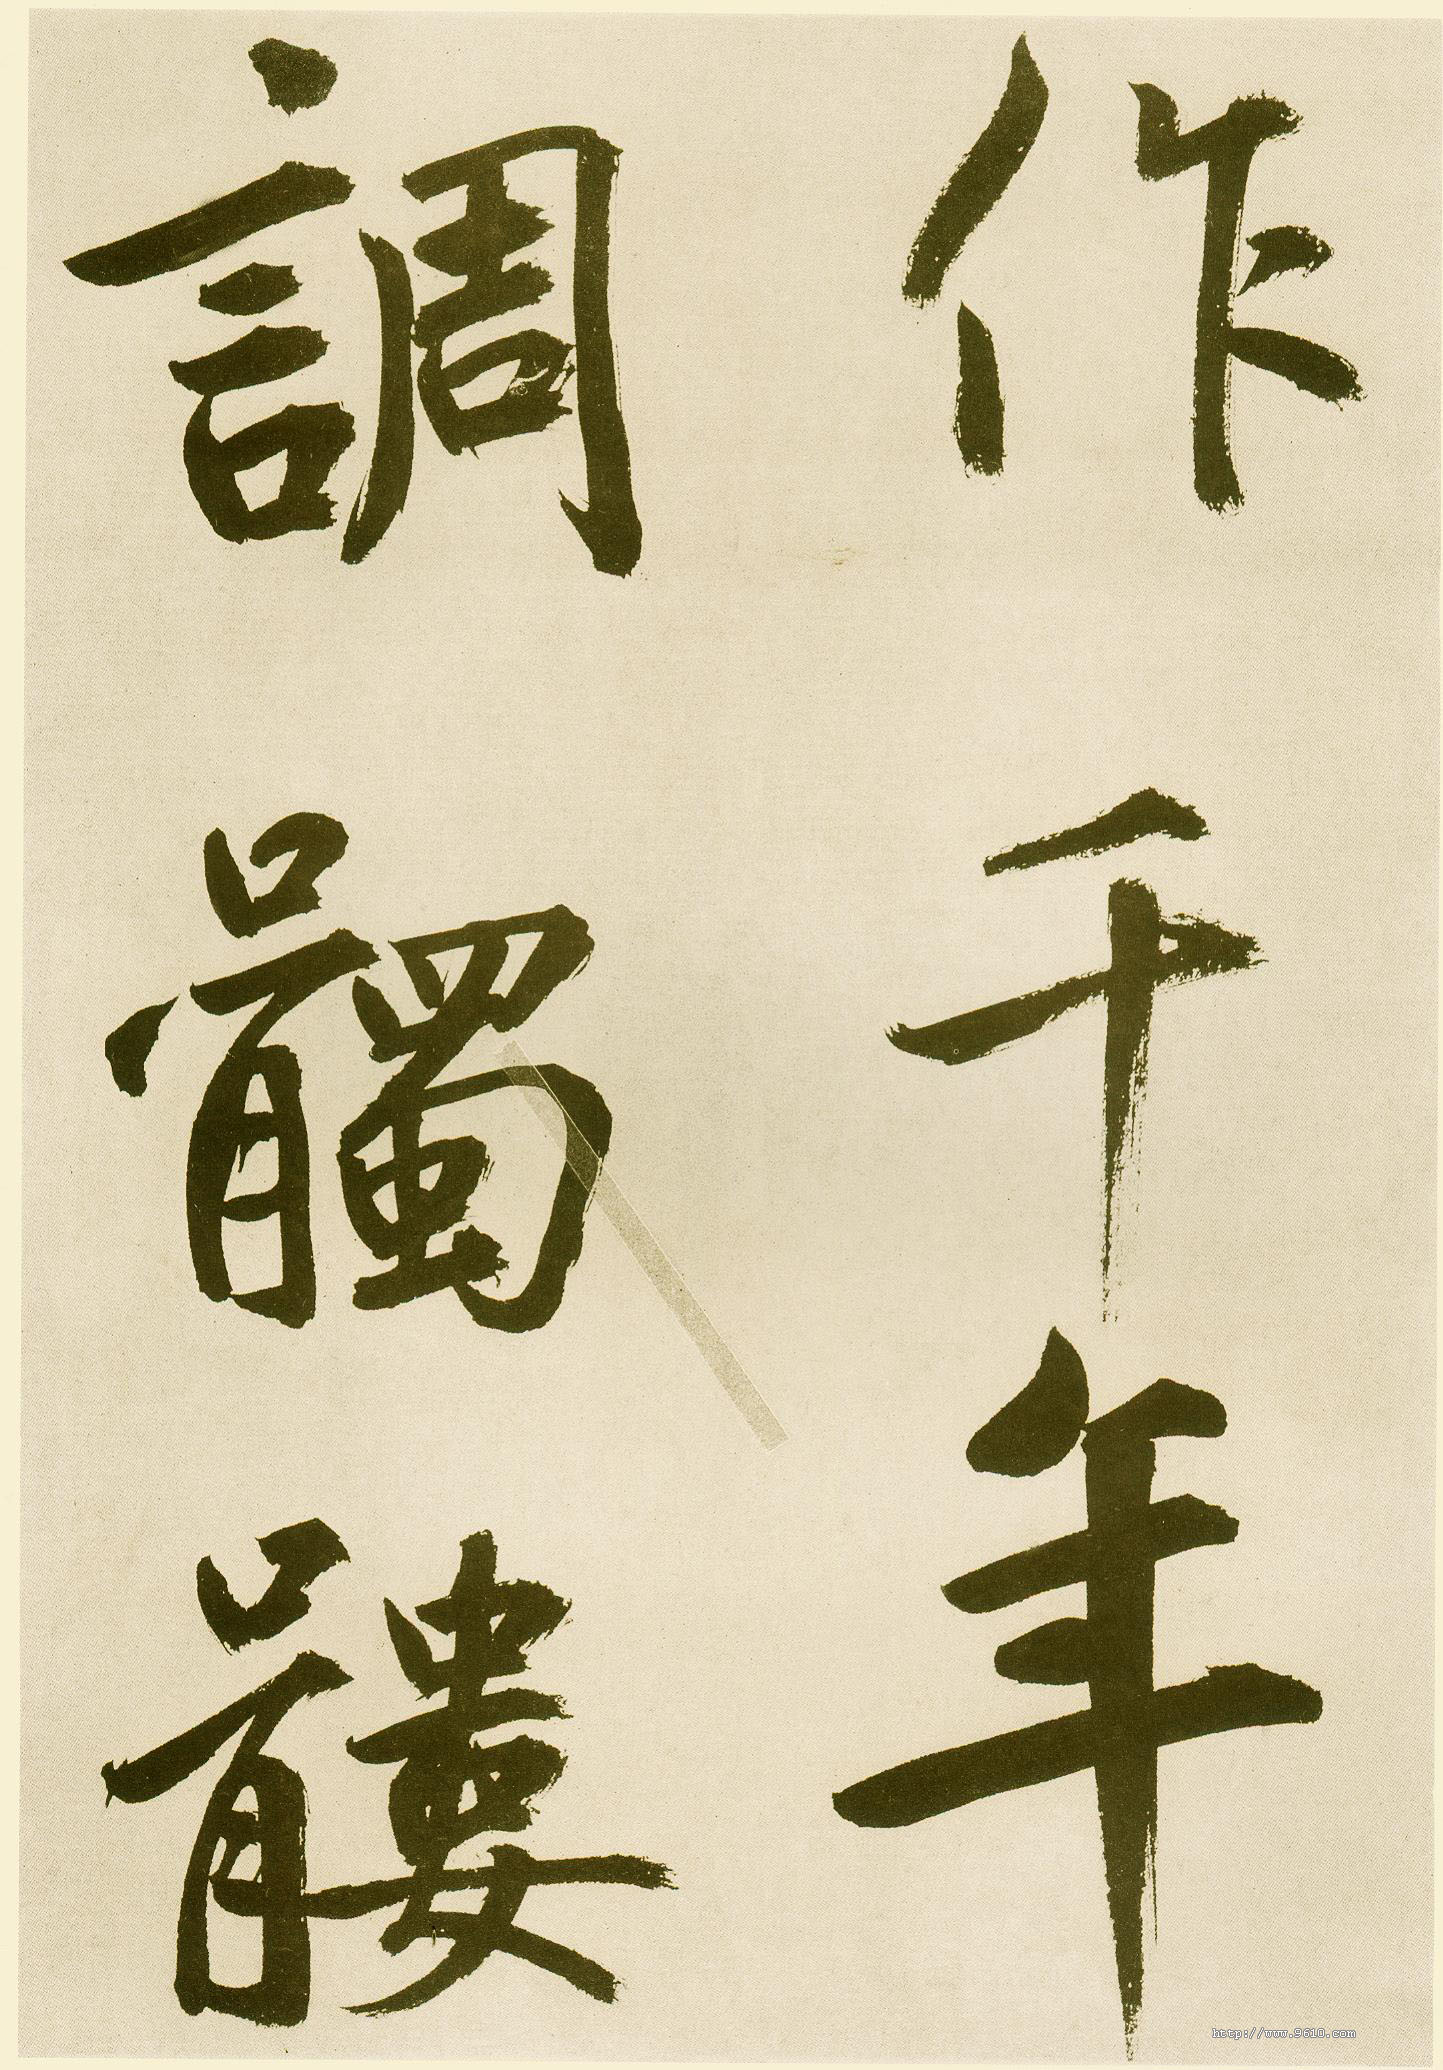 作千年
調髑髏
http://www.9610.com